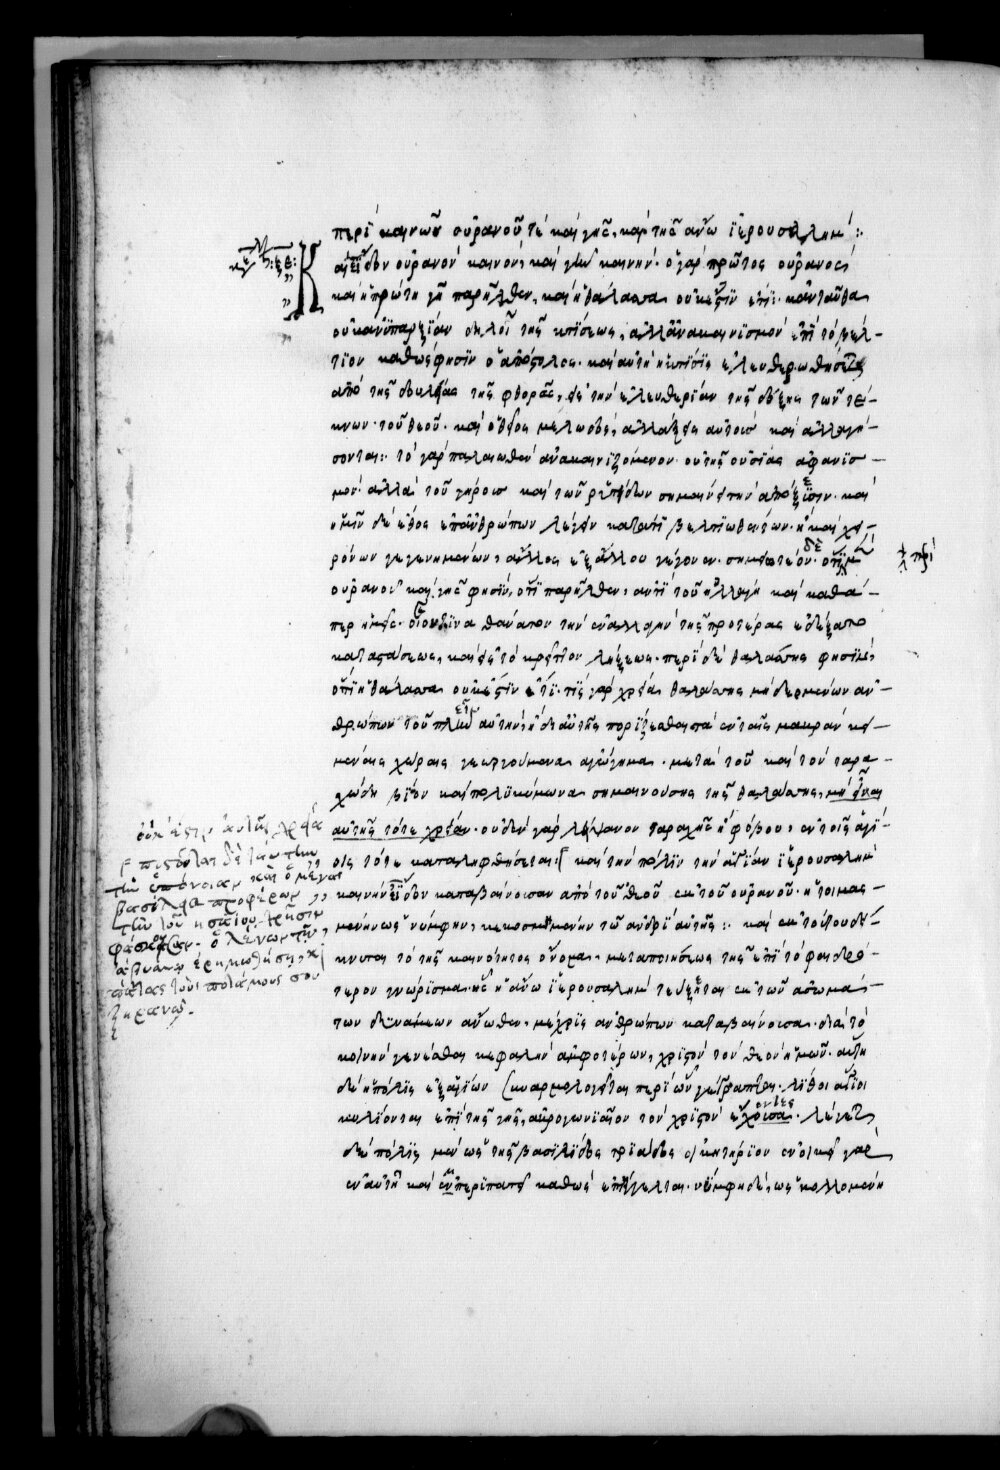 περὶ καινοῦ οὐρανοῦ τε καὶ γῆς, καὶ τῆς ἄνω ἱερουσαλήμ :
Καὶ εἶδον οὐρανὸν καινόν, καὶ γῆν καινήν· ὁ γὰρ πρῶτος οὐρανὸς
καὶ ἡ πρώτη γῆ παρῆλθεν, καὶ ἡ θάλασσα οὐκ ἔστιν ἔτι· κἀνταῦθα
οὐκ ἀνυπαρξίαν δηλοῖ τῆς κτίσεως, ἀλλ' ἀνακαινισμὸν ἐπὶ τὸ βέλ-
τιον καθὼς φησὶν ὁ ἀπόστολος· καὶ αὐτὴ ἡ κτίσις ἐλευθερωθήσεται
ἀπὸ τῆς δουλείας τῆς φθορᾶς, εἰς τὴν ἐλευθερίαν τῆς δόξης τῶν τέ-
κνων τοῦ θεοῦ· καὶ ὁ θεῖος μελωδός, ἀλλάξεις αὐτοὺς καὶ ἀλλαγή-
σονται: τὸ γὰρ παλαιωθὲν ἀνακαινιζόμενον· οὐ τῆς οὐσίας ἀφανισ-
μόν· ἀλλὰ τοῦ γήρους καὶ τῶν ῥυτίδων σημαίνει τὴν ἀπέξεσιν· καὶ
ἡμῖν δὲ ἔθος ἐπ' ἀνθρώπων λέγειν κατά τι βελτιωθέντων· ἢ καὶ χει-
ρόνων γεγενημένων, ἄλλος ἐξ ἄλλου γέγονεν· σημειωτέον δὲ ὅτι
περὶ
οὐρανοῦ καὶ γῆς φησίν, ὅτι παρῆλθεν, ἀντὶ τοῦ ἠλλάγη καὶ καθά-
περ ἡμεῖς· οἱονεί τινα θάνατον τὴν ἐναλλαγὴν τῆς προτέρας ἐδέξατο
καταστάσεως, καὶ εἰς τὸ κρεῖττον λήξεως· περὶ δὲ θαλάσσης φησίν,
ὅτι ἡ θάλασσα οὐκ ἔστιν ἔτι· τίς γὰρ χρεία θαλάσσης μὴ δεομένων ἀν-
θρώπων τοῦ πλεῖν αὐτήν, ἢ δι' αὐτῆς πορίζεσθαι τὰ ἐν ταῖς μακρὰν κει-
μέναις χώραις γεωργούμενα ἀγώγιμα· μετὰ τοῦ καὶ τὸν ταρα-
χώδη βίον καὶ πολυκύμονα σημαινούσης τῆς θαλάσσης, μὴ εἶναι
αὐτῆς τότε χρείαν· οὐδὲν γὰρ λείψανον ταραχῆς ἢ φόβου, ἐν τοῖς ἁγί-
οις τότε καταλειφθήσεται· καὶ τὴν πόλιν τὴν ἁγίαν ἱερουσαλὴμ
καινὴν εἶδον καταβαίνουσαν ἀπὸ τοῦ θεοῦ ἐκ τοῦ οὐρανοῦ· ἡτοιμασ-
μένην ὡς νύμφην, κεκοσμημένην τῷ ἀνδρὶ αὐτῆς : καὶ ἐκ τούτου δεί-
κνυται τὸ τῆς καινότητος ὄνομα, μεταποιήσεως τῆς ἐπὶ τὸ φαιδρό-
τερον γνώρισμα· ἧς ἡ ἄνω ἱερουσαλὴμ τεύξεται ἐκ τῶν ἀσωμά-
των δυνάμεων ἄνωθεν, μέχρις ἀνθρώπων καταβαίνουσα· διὰ τὸ
κοινὴν γενέσθαι κεφαλὴν ἀμφοτέρων, χριστὸν τὸν θεὸν ἡμῶν· αὕτη
δὲ ἡ πόλις ἐξ ἁγίων συναρμολογεῖται περὶ ὧν γέγραπται· λίθοι ἅγιοι
κυλίονται ἐπὶ τῆς γῆς, ἀκρογωνιαῖον τὸν χριστὸν ἔχοντες· λέγεται
δὲ πόλις μὲν ὡς τῆς βασιλίδος τριάδος οἰκητήριον ἐνοικεῖ γὰρ
ἐν αὐτῇ καὶ ἐμπεριπατεῖ καθὼς ἐπήγγελται· νύμφη δέ, ὡς κολλωμένη
οὐκ ἔστιν αὐτῆς χρεία